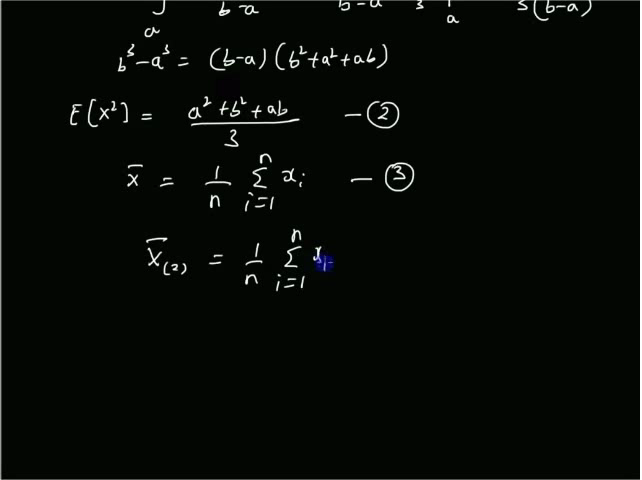 ∫ₐ b-a b-a 3 |ₐ 3(b-a)
b³-a³ = (b-a) (b²+a²+ab)
E[X²] = (a²+b²+ab)/3 — ②
x̄ = 1/n Σᵢ₌₁ⁿ xᵢ — ③
X̄₍₂₎ = 1/n Σᵢ₌₁ⁿ xᵢ